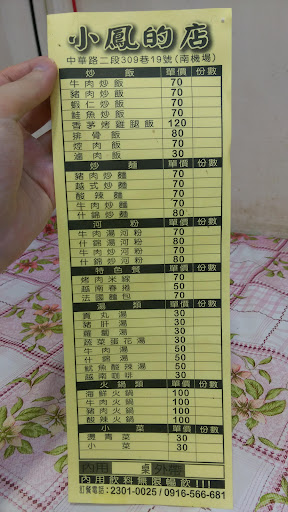 小鳳的店
中華路二段309巷19號(南機場)
炒飯 單價 份數
牛肉炒飯 70
豬肉炒飯 70
蝦仁炒飯 70
鮭魚炒飯 70
香茅烤雞腿飯 120
排骨飯 80
焢肉飯 70
滷肉飯 30
炒麵 單價 份數
豬肉炒麵 70
越式炒麵 70
酸辣麵 70
牛肉炒麵 70
什錦炒麵 80
河粉 單價 份數
牛肉湯河粉 70
什錦湯河粉 80
牛肉炒河粉 70
什錦炒河粉 80
特色餐 單價 份數
烤肉米線 70
越南春捲 50
法國麵包 70
湯類 單價 份數
貢丸湯 30
豬肝湯 30
蘿蔔湯 30
蔬菜蛋花湯 30
牛肉湯 50
什錦湯 50
魷魚酸辣湯 50
越南咖啡 30
火鍋類 單價 份數
海鮮火鍋 100
牛肉火鍋 100
豬肉火鍋 100
酸辣火鍋 100
小菜 單價 份數
燙青菜 30
小菜 30
內用 桌 外帶
內用飲料無限暢飲!!!
訂餐電話:2301-0025/0916-566-681